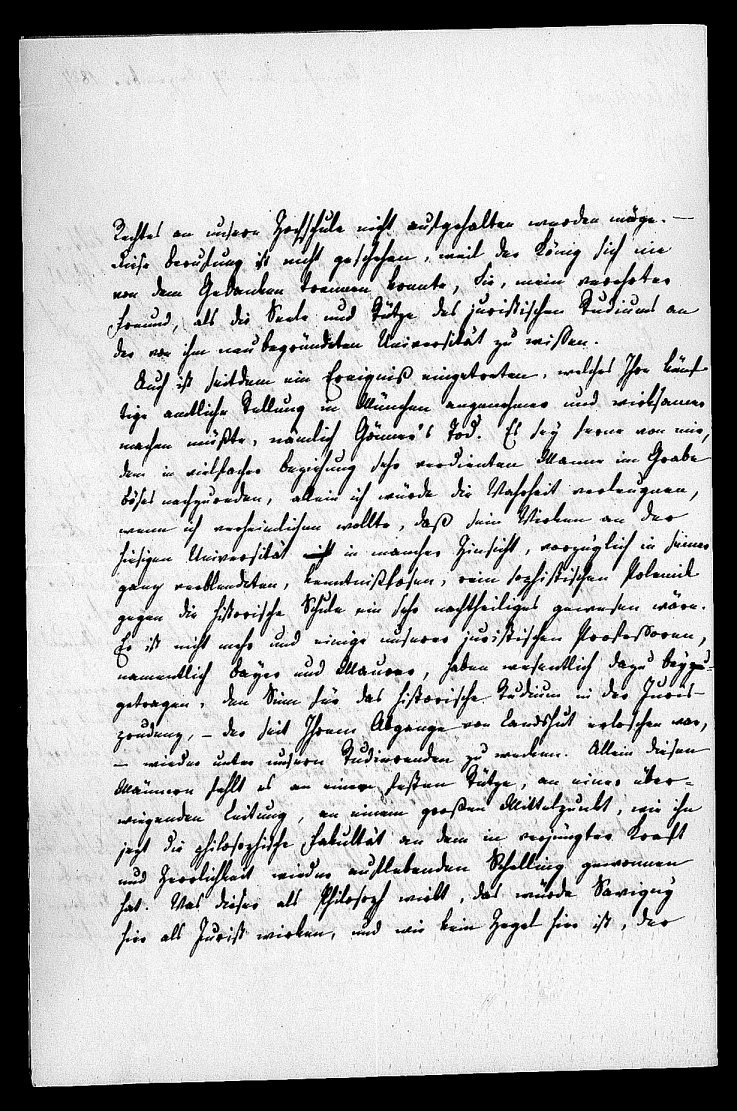 Rechtes an unsern Hochschule nicht aufgehalten werden möge. —
Diese Berufung ist nicht geschehen, weil der König sich nie
von dem Gedanken trennen konnte, Sie, mein verehrter
Freund, als die Seele und Stütze des juristischen Studiums an
der von ihm neubegründeten Universität zu wissen.
Auch ist seitdem ein Ereigniß eingetreten, welches Ihre künf-
tige amtliche Stellung in München angenehmer und wirksamer
machen müßte, nämlich Gönner's Tod. Es sey ferne von mir,
dem in vielfacher Beziehung sehr verdienten Manne im Grabe
böses nachzureden, allein ich würde die Wahrheit verleugnen,
wenn ich verheimlichen wollte, daß sein Wirken an der
hiesigen Universität in mancher Hinsicht, vorzüglich in seiner
ganz verblendeten, kenntnißlosen, rein sophistischen Polemik
gegen die historische Schule ein sehr nachtheiliges gewesen wäre.
Er ist nicht mehr und einige unserer juristischen Professoren,
namentlich Bayer und Maurer, haben wesentlich dazu beyge-
getragen, den Sinn für das historische Studium in der Juris-
prudenz, – der seit Ihrem Abgange von Landshut erloschen war,
– wieder unter unsern Studierenden zu wecken. Allein diesen
Männern fehlt es an einer festen Stütze, an einer über-
wiegenden Leitung, an einem großen Mittelpunkt, wie ihn
jezt die philosophische Fakultät an dem in verjüngter Kraft
und Herrlichkeit wieder auflebenden Schelling gewonnen
hat. Was dieser als Philosoph wirkt, das würde Savigny
hier als Jurist wirken, und wie kein Hegel hier ist, der